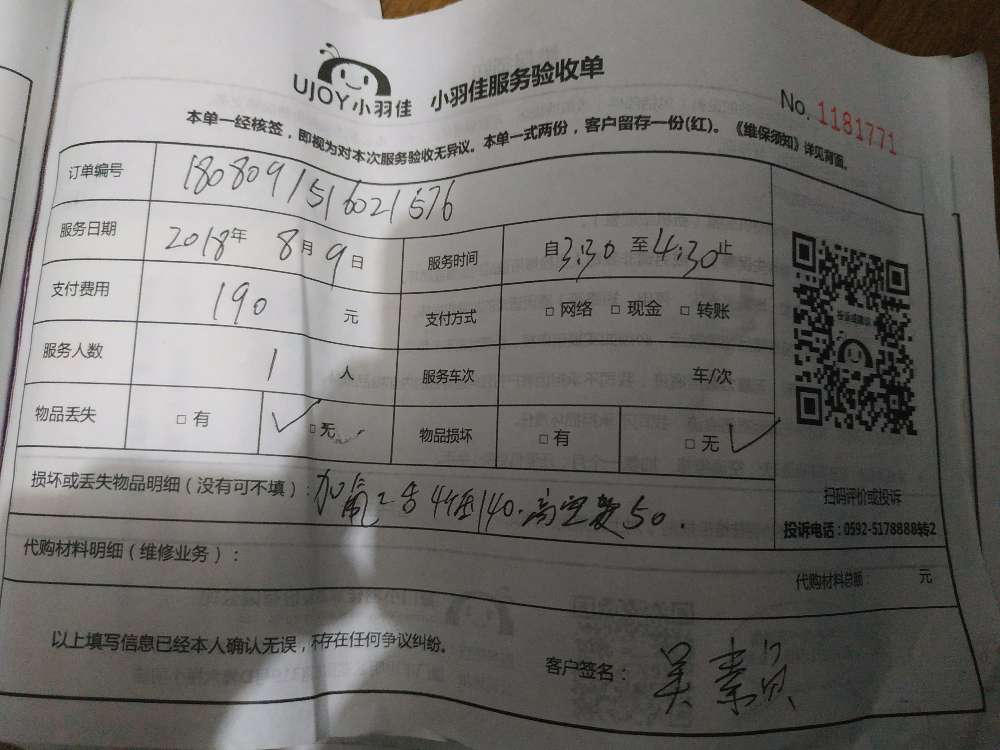 UJOY小羽佳 小羽佳服务验收单
No. 1181771
本单一经核签，即视为对本次服务验收无异议。本单一式两份，客户留存一份(红)。《维保须知》详见背面。
订单编号 1808091516021576
服务日期 2018年 8月 9日 服务时间 自3:30 至4:30止
支付费用 190 元 支付方式 □ 网络 □ 现金 □ 转账
服务人数 1 人 服务车次 车/次
物品丢失 □ 有 □ 无 物品损坏 □ 有 □ 无
损坏或丢失物品明细（没有可不填）：加氟 140. 高空费50.
扫码评价或投诉
投诉电话：0592-5178888转2
代购材料明细（维修业务）：
代购材料总额： 元
以上填写信息已经本人确认无误，不存在任何争议纠纷。
客户签名：吴素贞